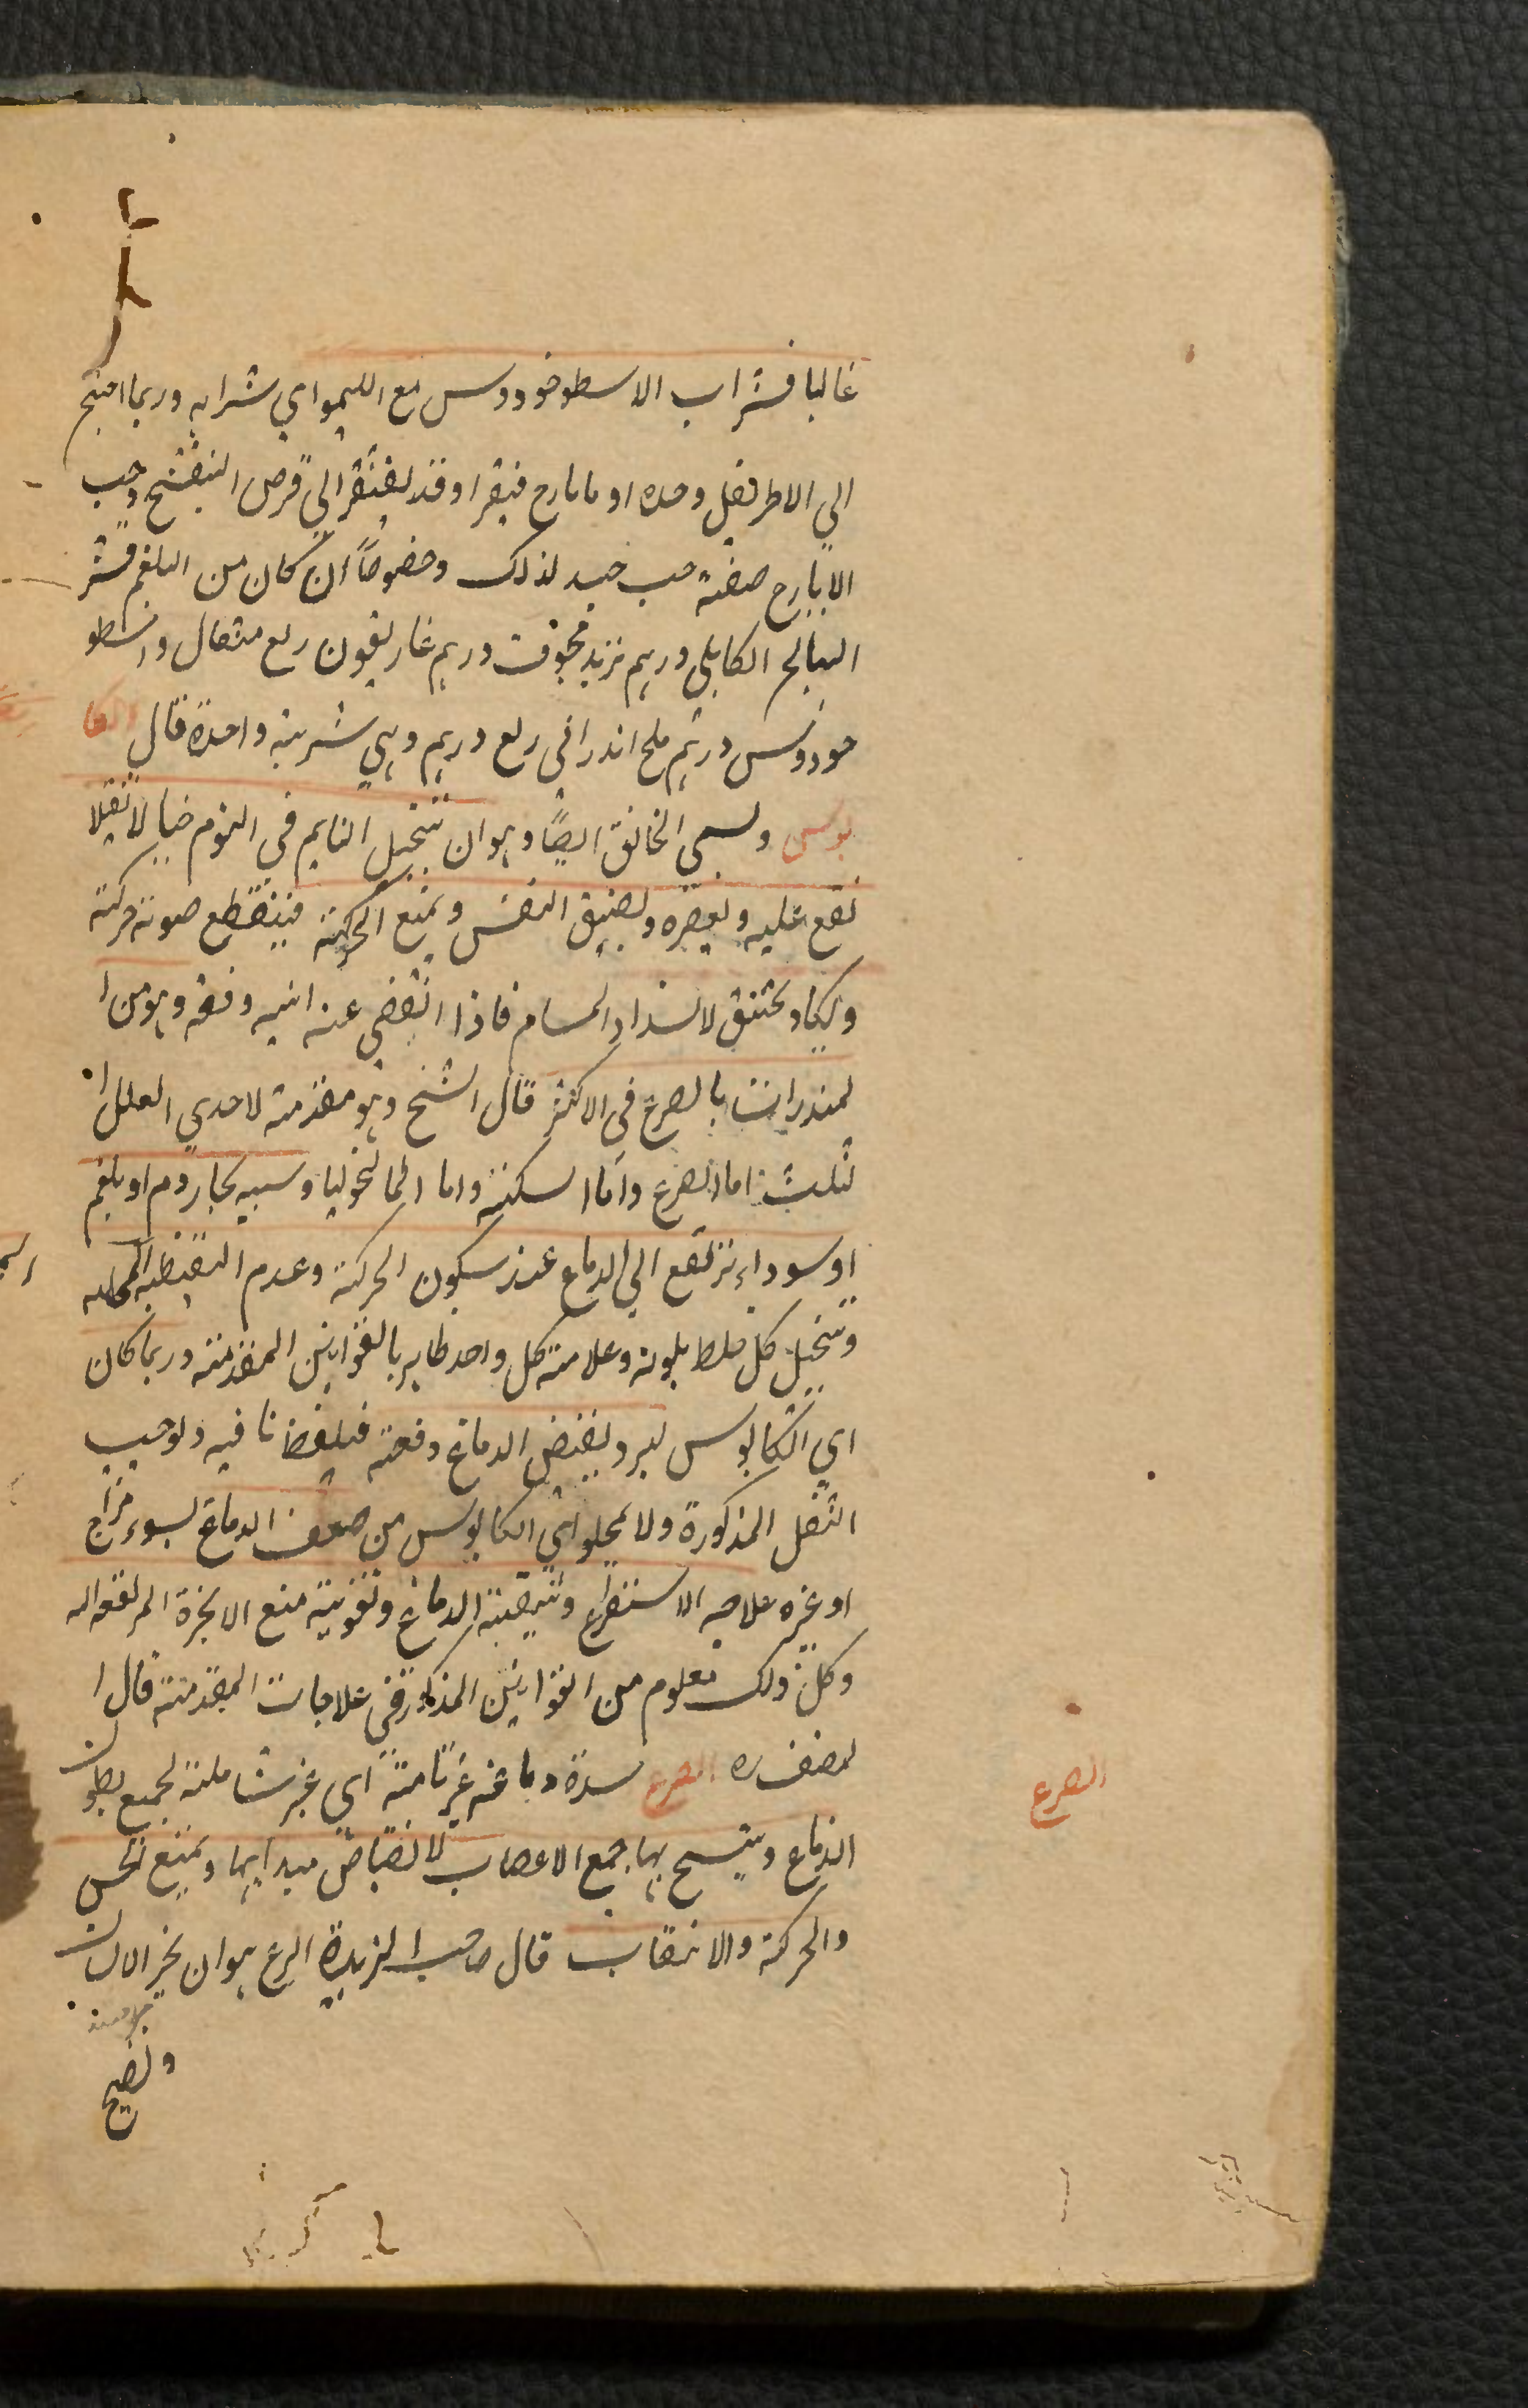 غالبا فشراب الاسطوخودوس مع الليمو اي شرابه وربما احتيج
الي الاطريفل وحده او مايارح فيقرا وقد يفتقر الي قرص البنفسج وحب
الايارح صفة حب جيد لذلك وخصوصاً ان كان من البلغم قشر
الهالج الكابلي درهم تربد مجوف درهم غاريقون ربع مثقال واسطو
خودوس درهم ملح اندراني ربع درهم وهي شربة واحدة قال الكا
بوس ويسمي الخانق ايضاً وهو ان يتخيل النايم في النوم خيالا ثقيلا
يقع عليه ويعصره ويضيق النفس ويمنع الحركة فينقطع صوته وحركته
ويكاد يختنق لانسداد المسام فاذا انقضي عنه انتبه دفعة وهو من ا
لمنذرات بالصرع في الاكثر قال الشيخ وهو مقدمة لاحدي العلل ا
لثلث اما الصرع واما السكتة واما المالنخوليا وسببه بخار دم او بلغم
او سوداء ترتفع الي الدماغ عند سكون الحركة وعدم اليقظة المحللة
ويتخيل كل خلط بلونه وعلامة كل واحد ظاهر بالقوانين المقدمة وربما كان
اي الكابوس لبرد يقبض الدماغ دفعة فيلفظ نافيه ولوجب
الثقل المذكورة ولا يخلو اي الكابوس من ضعف الدماغ لسوء مزاج
او غيره علاجه الاستفراغ وتنقية الدماغ وتقوية منع الابخرة المرتفعة اليه
وكل ذلك معلوم من القوانين المذكورة في علاجات المقدمة قال ا
لمصنف ره الصرع سدة دماغه غير تامة اي غير شاملة لجميع بطون
الدماغ ويتشنج بها جميع الاعصاب لانقباض مبدايها ويمنع الحس
والحركة والانتصاب قال صاحب الزبدة الرع هو ان يخر الانسان
ولصيح
الصرع